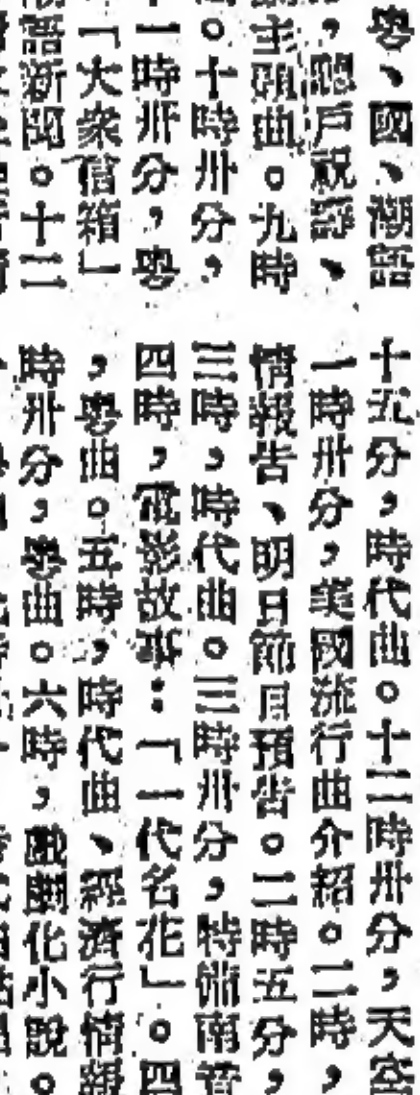 粵、國、潮語
，聽戶祝、
主題曲。九時
。十時卅分，
一時卅分，粵
「大衆信箱」
語新聞。十二
十五分，時代曲。十二時卅分，天空
一時卅分，美國流行曲介紹。二時，
情報告、明日節目預告。二時五分，
三時，時代曲。三時卅分，特備南音
四時，電影故事：「一代名花」。四
，粵曲。五時，時代曲、經濟行情報
時卅分，粵曲。六時，戲劇化小說。